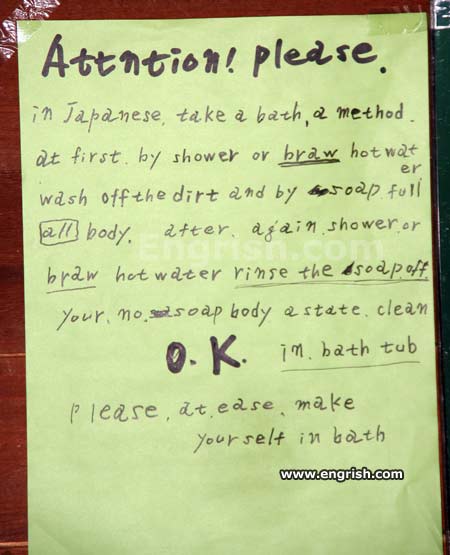 Attntion! please.
in Japanese, take a bath, a method.
at first. by shower or braw hot water
wash off the dirt and by soap. full
all body. after. again. shower. or
braw hot water rinse the soap. off
your. no. soap body a state. clean
O.K. in. bath tub
please. at. ease. make
yourself in bath
Engrish.com
www.engrish.com